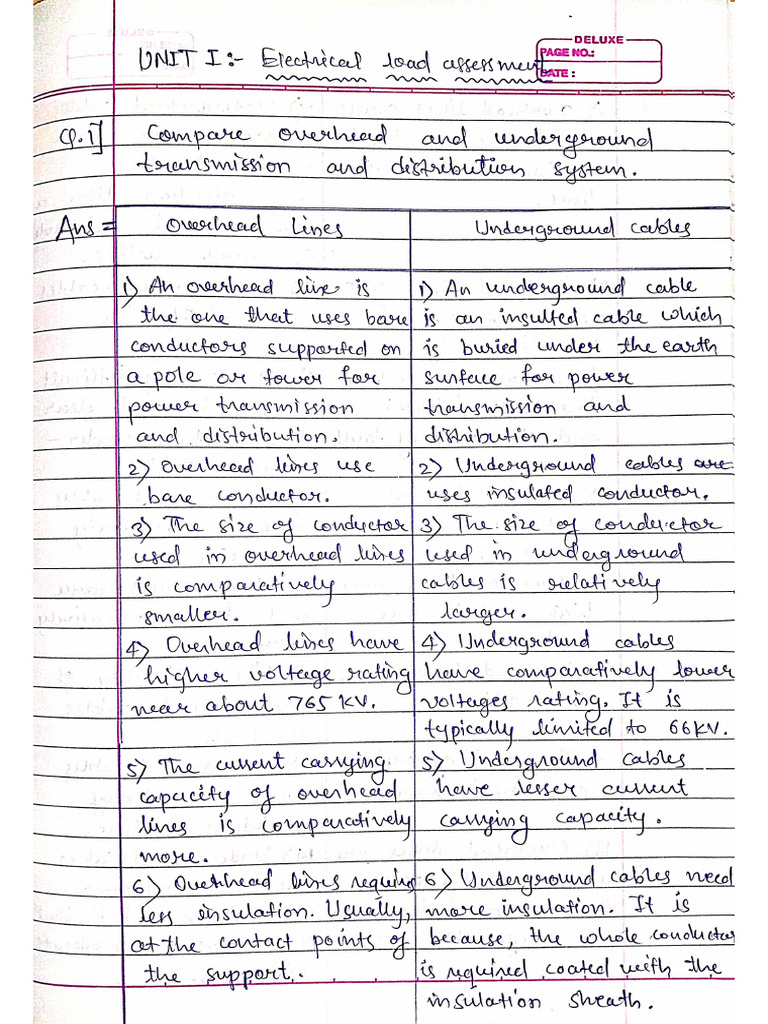 DELUXE
PAGE NO.:
DATE :
UNIT I:- Electrical load assessment
Q.1] Compare overhead and underground
transmission and distribution system.
Ans = Overhead Lines
1) An overhead line is
the one that uses bare
conductors supported on
a pole or tower for
power transmission
and distribution.
2) Overhead lines use
bare conductor.
3) The size of conductor
used in overhead lines
is comparatively
smaller.
4) Overhead lines have
higher voltage rating
near about 765 KV.
5) The current carrying
capacity of overhead
lines is comparatively
more.
6) Overhead lines requires
less insulation. Usually,
at the contact points of
the support.
Underground cables
1) An underground cable
is an insulted cable which
is buried under the earth
surface for power
transmission and
distribution.
2) Underground cables are
uses insulated conductor.
3) The size of conductor
used in underground
cables is relatively
larger.
4) Underground cables
have comparatively lower
voltages rating. It is
typically limited to 66KV.
5) Underground cables
have lesser current
carrying capacity.
6) Underground cables need
more insulation. It is
because, the whole conductor
is required coated with the
insulation sheath.